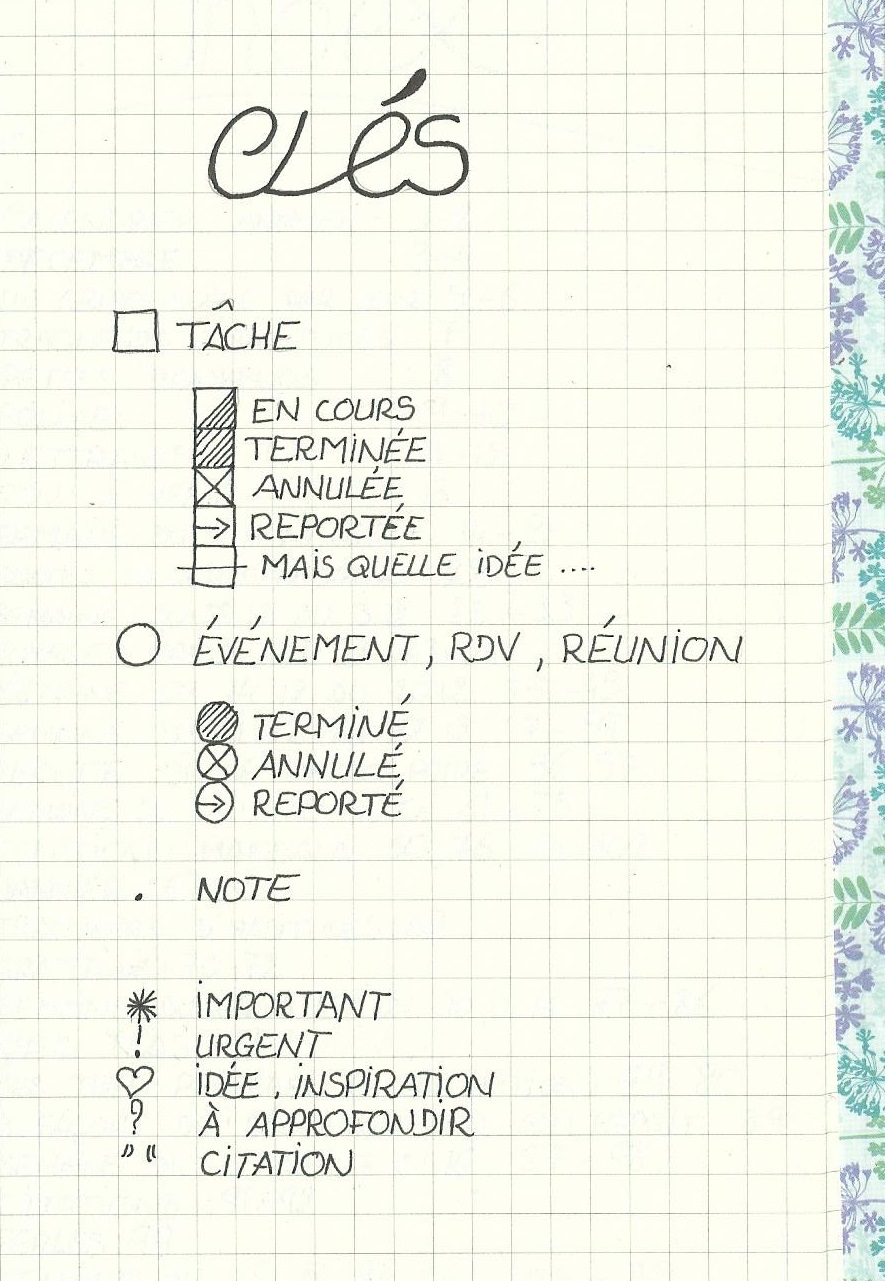 CLÉS
TÂCHE
EN COURS
TERMINÉE
ANNULÉE
REPORTÉE
MAIS QUELLE IDÉE ....
ÉVÉNEMENT, RDV, RÉUNION
TERMINÉ
ANNULÉ
REPORTÉ
. NOTE
* IMPORTANT
! URGENT
♡ IDÉE, INSPIRATION
? À APPROFONDIR
" " CITATION